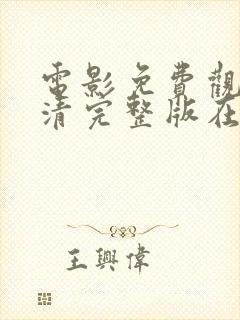 電影免費觀
清完整版在
王興偉